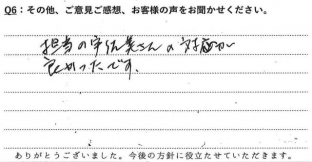 Q6：その他、ご意見ご感想、お客様の声をお聞かせください。
担当の宇佐美さんの対応が
良かったです。
ありがとうございました。今後の方針に役立たせていただきます。